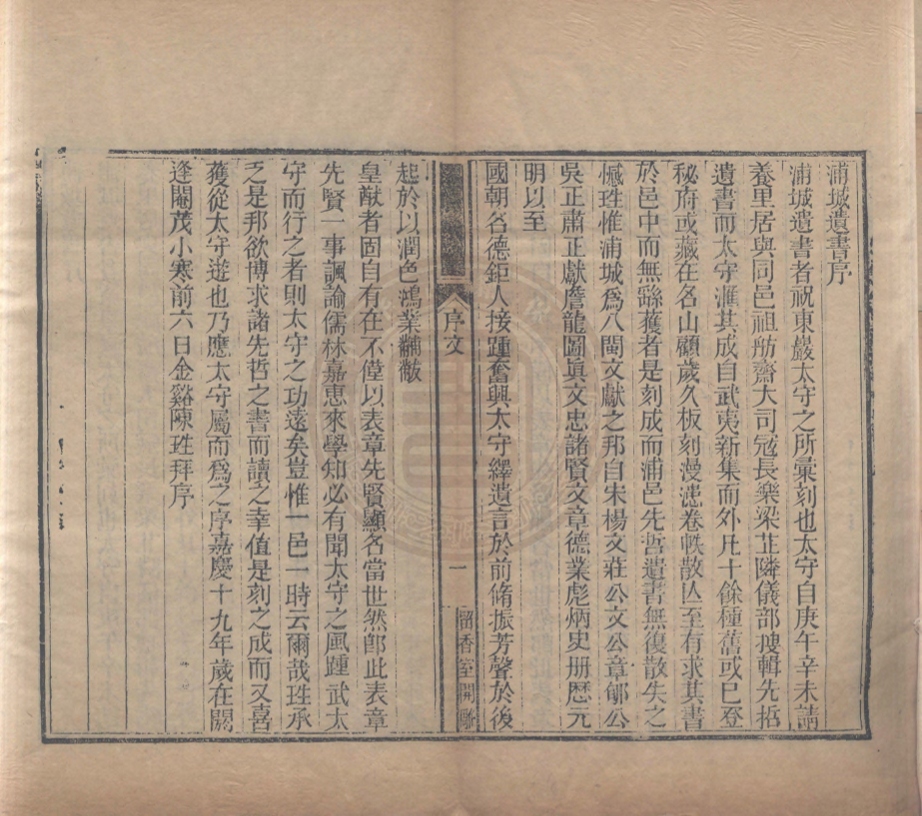 浦城遺書序
浦城遺書者祝東巖太守之所彙刻也太守自庚午辛未請
養里居與同邑祖舫齋大司冦長樂梁茝隣儀部搜輯先哲
遺書而太守滙其成自武夷新集而外凡十餘種舊或已登
秘府或藏在名山顧歲久板刻漫漶卷帙散亾至有求其書
於邑中而無繇獲者是刻成而浦邑先哲遺書無復散失之
憾珄惟浦城爲八閩文獻之邦自宋楊文莊公文公章郇公
吳正肅正獻詹龍圖眞文忠諸賢文章德業彪炳史册歷元
明以至
國朝名德鉅人接踵奮興太守繹遺言於前脩振芳聲於後
序文
一
留香室開雕
起於以潤色鴻業黼黻
皇猷者固自有在不僅以表章先賢顯名當世然卽此表章
先賢一事諷諭儒林嘉惠來學知必有聞太守之風踵武太
守而行之者則太守之功遠矣豈惟一邑一時云爾哉珄承
乏是邦欲博求諸先哲之書而讀之幸值是刻之成而又喜
獲從太守遊也乃應太守屬而爲之序嘉慶十九年歲在閼
逢閹茂小寒前六日金谿陳珄拜序